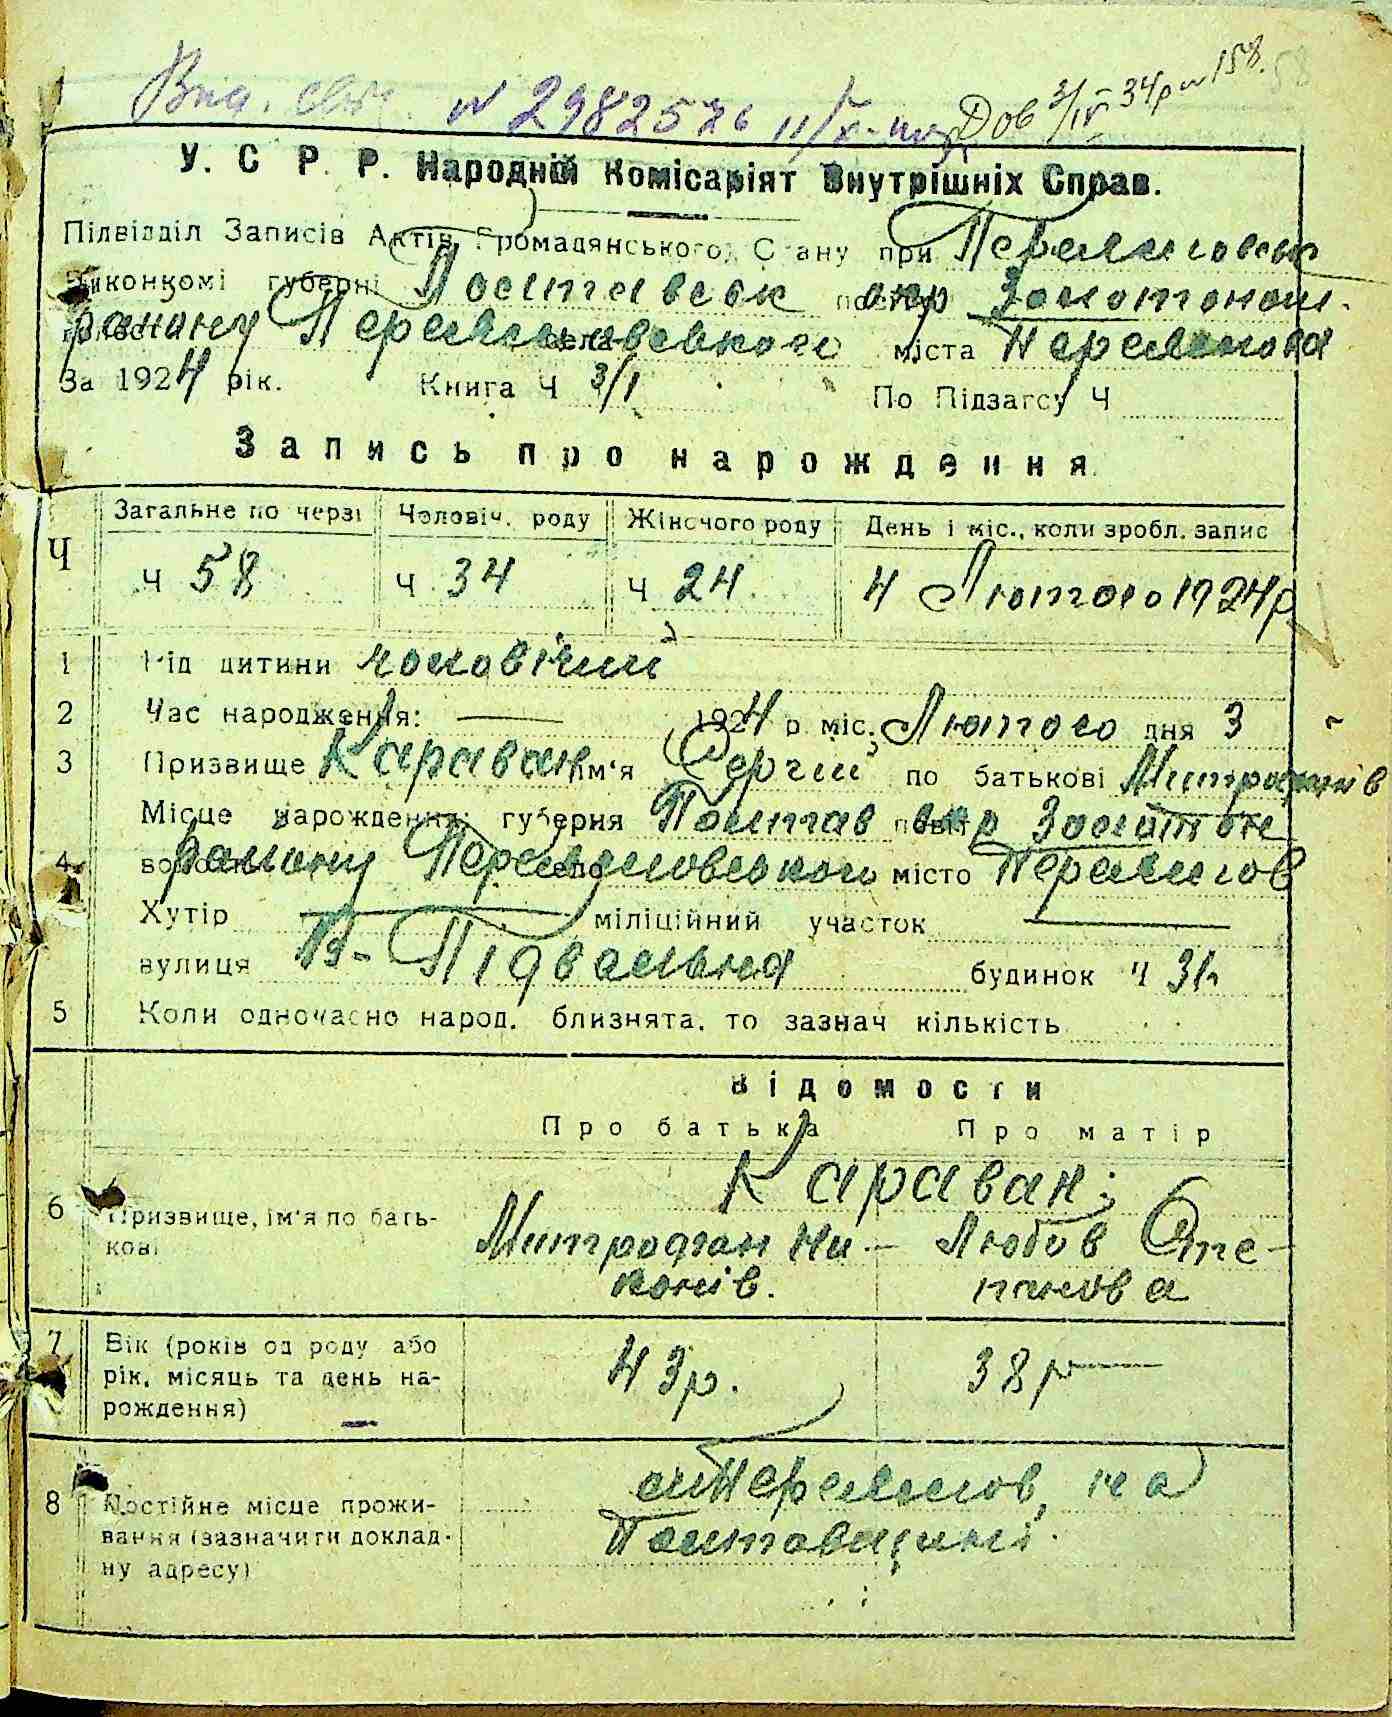 № 2982576 Дов 3/IV 34р № 158.
У. С Р. Р. Народній Комісаріят Внутрішніх Справ.
Підвідділ Записів Актів Громадянського Стану при Переяславськ
Виконкомі губерні Полтавськ окр Золотонош.
району Переяславського міста Переяслова
За 1924 рік. Книга Ч 3/1 По Підзагсу Ч
Запись про нарождення
Ч Загальне по черзі Чоловіч. роду Жіночого роду День і міс., коли зробл. запис
Ч 58 Ч 34 Ч 24 4 Лютого 1924р
1 Рід дитини чоловічий
2 Час народження: 1924 р міс. Лютого дня 3
3 Призвище Караван Ім'я Сергій по батькові Митрофанів
Місце нарождення: губерня Полтав окр Золотон
4 району Переясловського місто Переяслов
Хутір міліційний участок
вулиця В-Підвальна будинок ч 31
5 Коли одночасно народ. близнята. то зазнач кількість
Відомости
Про батька Про матір
Караван;
6 Призвище, ім'я по бать- Митрофан Ни- Любов Сте-
кові конів. панова
7 Вік (років од роду або 43р. 38р
рік, місяць та день на-
рождення)
м Переяслов, на
8 Постійне місце прожи- Полтавщині.
вання (зазначити доклад-
ну адресу)